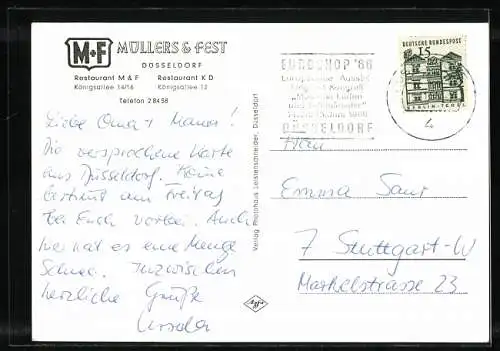 M+F
MÜLLERS & FEST
DÜSSELDORF
Restaurant M & F
Königsallee 14/16
Restaurant K D
Königsallee 12
Telefon 2 84 58
Liebe Oma + Mama!
Die versprochene Karte
aus Düsseldorf. Heine
kommt am Freitag
bei Euch vorbei. Auch
hier hat es eine Menge
Schnee. Inzwischen
herzliche Grüße
Ursula
Verlag Photohaus Leistenschneider, Düsseldorf
Agfa
EUROSHOP '66
DÜSSELDORF
4
DEUTSCHE BUNDESPOST
15
BERLIN-TEGEL
Frau
Emma Saur
7 Stuttgart-W
Markelstrasse 23